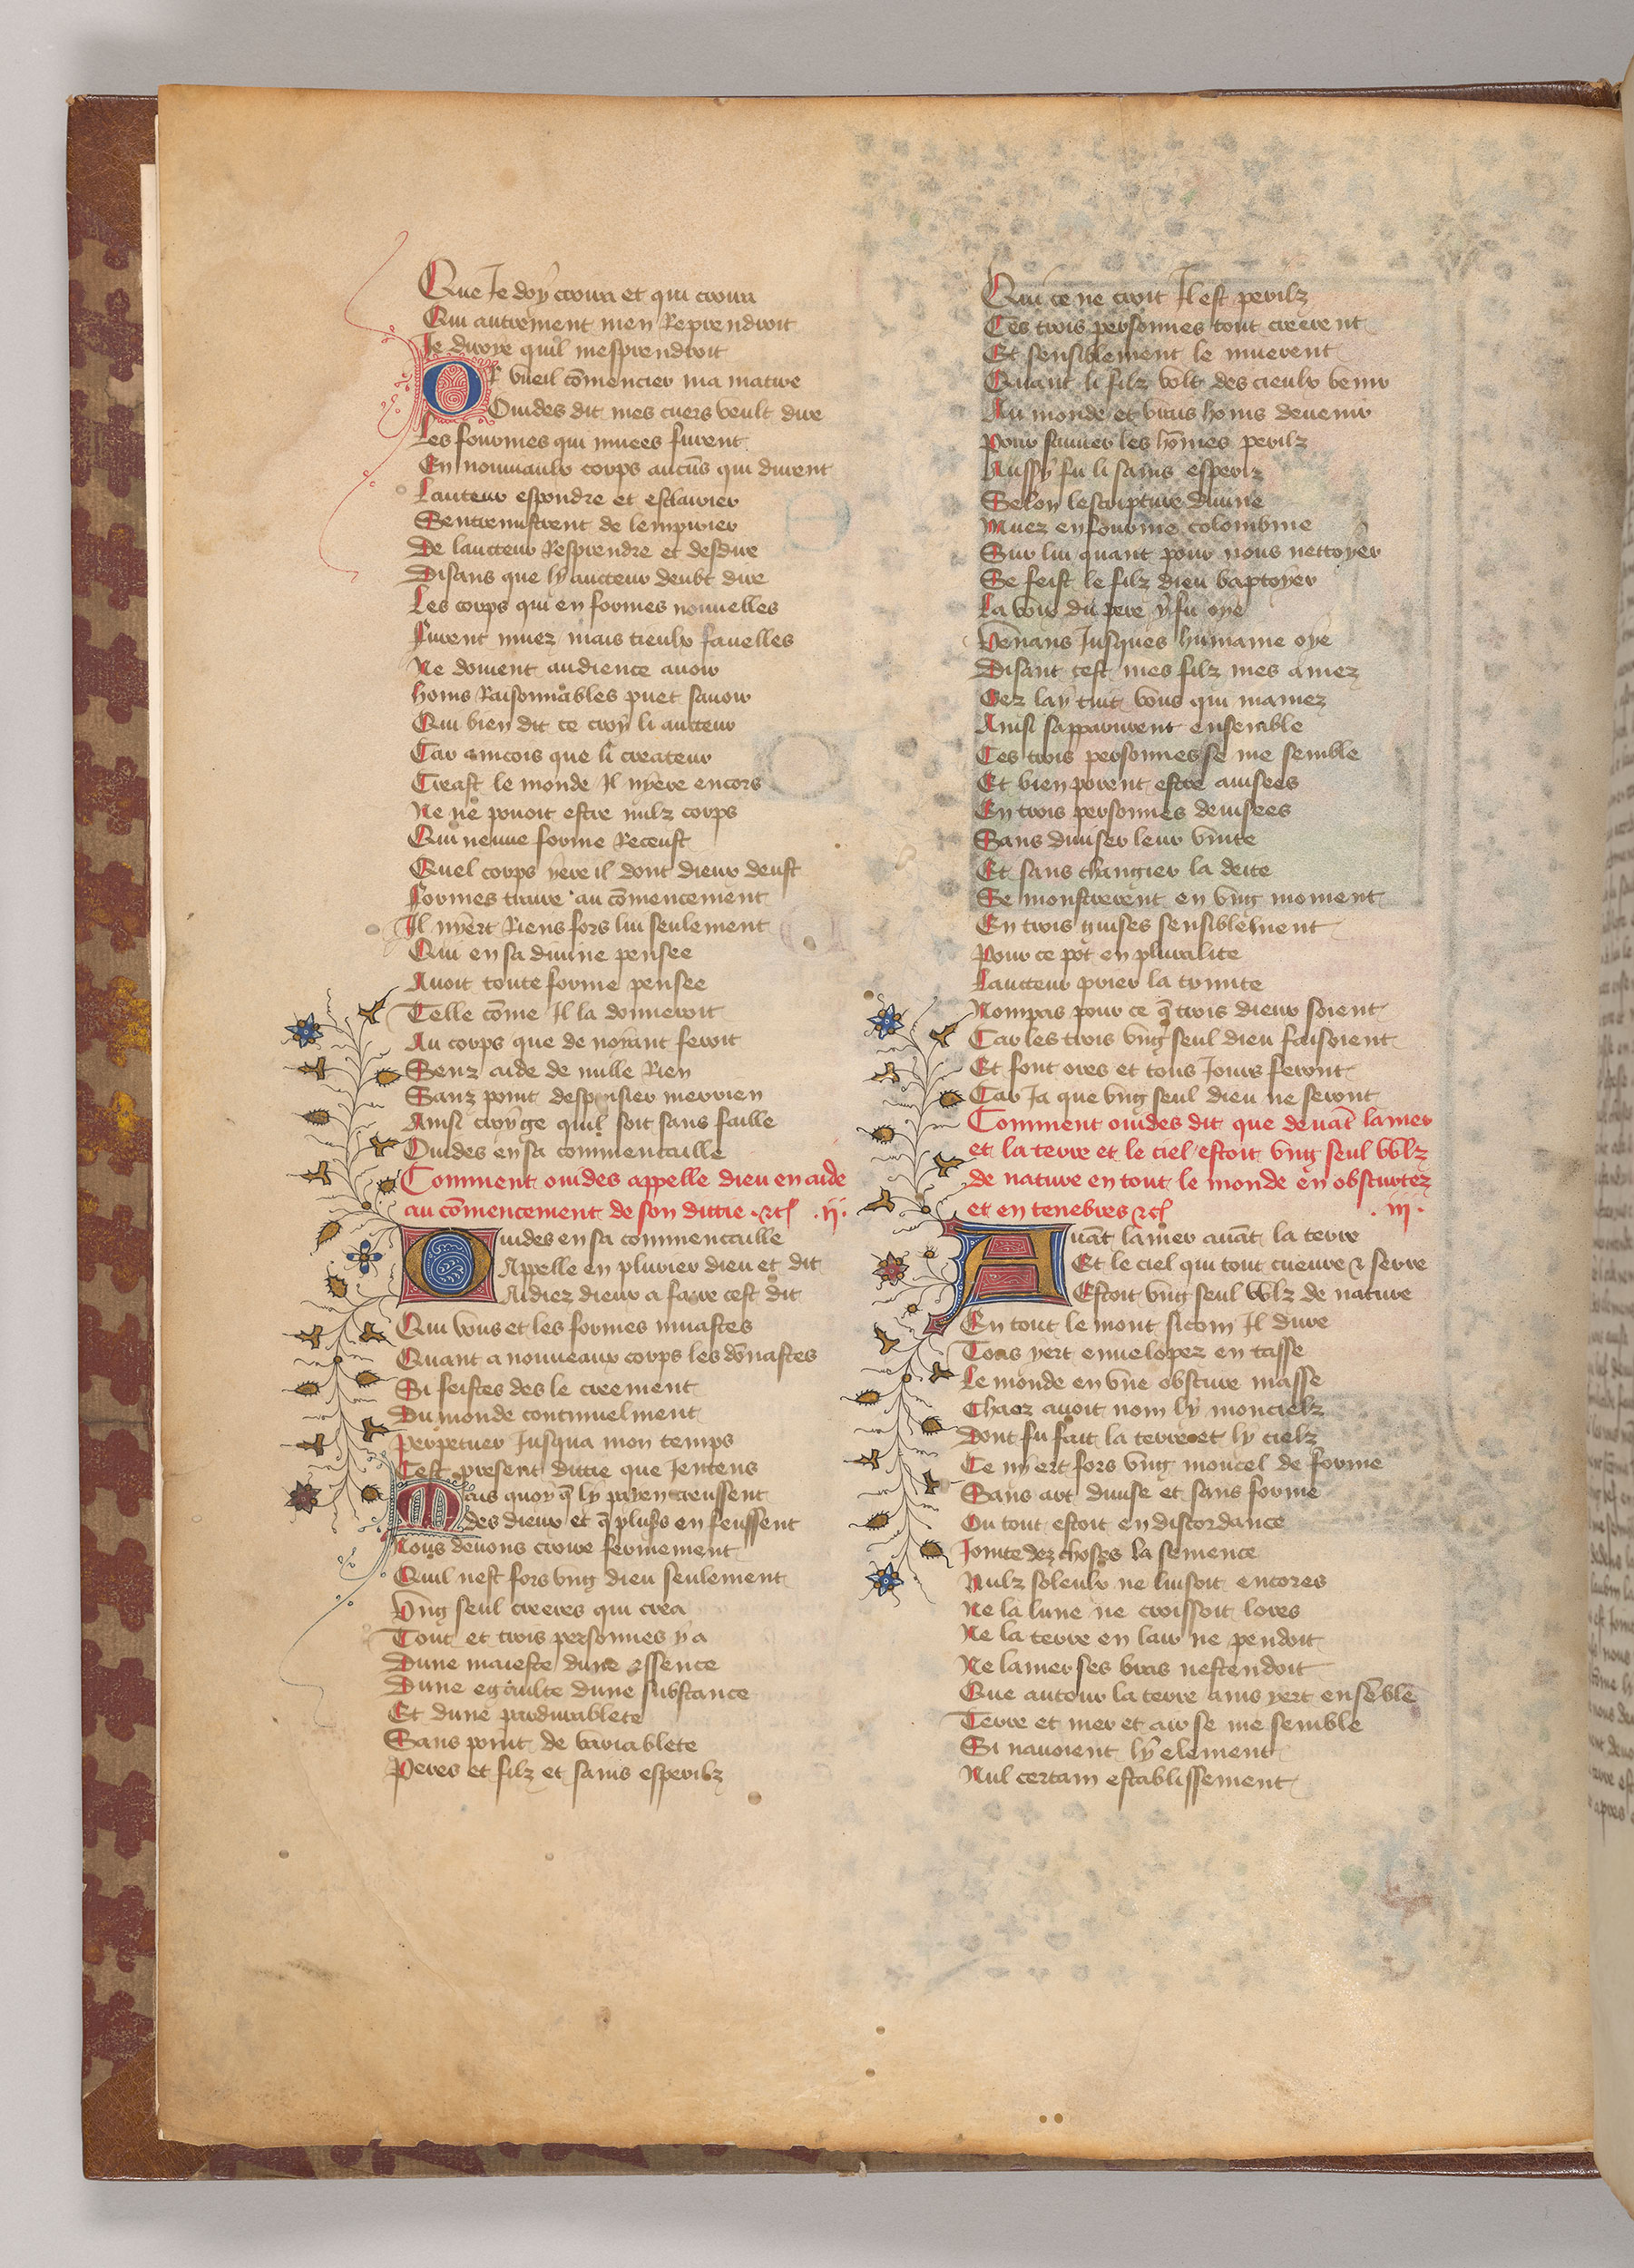 Que Je doy croira et qui croira
Qui autrement men Reprendroit
Je diroye quil mesprendroit
Or vueil cõmencier ma matire
Ouides dit mes cuers veult dire
Les fourmes qui muees furent
En nouuaulx corps aucũs qui durent
Lauteur espondre et esclairier
Sentremistrent de lempirier
De laucteur Resprendre et desdire
Disans que ly aucteur deubt dire
Les corps qui en formes nouuelles
Furent muez mais tieulx fauelles
Ne doiuent audience auoir
Homs Raisonnables puet sauoir
Qui bien dit ce croy li aucteur
Car aincois que li createur
Creast le monde Il nyere encors
Ne ne pouoit estre nulz corps
Qui neuue forme Receust
Quel corps yere il dont dieux deust
Formes traire au cõmencement
Il nyert Riens fors lui seulement
Qui en sa diuine pensee
Auoit toute forme pensee
Telle cõme Il la donneroit
Au corps que de noyant feroit
Senz aide de nulle Rien
Sanz point despensier merrien
Ainsi croy ge quil soit sans faille
Ouides en sa commencaille
Comment ouides appelle dieu en aide
au cõmencement de son dittie ⁊cͭ .ij.
Ouides en sa commencaille
Appelle en plurier dieu et dit
Aidiez dieux a faire cest dit
Qui vous et les formes muastes
Quant a nouueaux corps les dõnastes
Si feistes des le creement
Du monde continuelment
Perpetuer Jusqua mon temps
Cest present dittie que Jentens
Mais quoy q̃ ly payen creussent
des dieux et q̃ pluss en feussent
Nous deuons croire fermement
Quil nest fors vng dieu seulement
Vng seul creeres qui crea
Tout et trois personnes y a
Dune maieste dune essence
Dune egaulte dune substance
Et dune pardurablete
Sans point de variablete
Peres et filz et sains esperilz
Qui ce ne croit Il est perilz
Ces trois personnes tout creerent
Et sensiblement le muerent
Quant li filz volt des cieulx venir
Au monde et vrais homs deuenir
Pour sauuer les hõmes perilz
Aussy fu li sains esperiz
Selon lescripture diuine
Muez en fourme colombine
Sur lui quant pour nous nettoyer
Se feist le filz dieu baptoyer
La voix du pere y fu oye
Venans Jusques humaine oye
Disant cest mes filz mes amez
Oez lay tuit vous qui mamez
Ainsi sapparurent ensemble
Ces trois personnes se me semble
Et bien porent estre auisees
En trois personnes deuisees
Sans diuiser leur vnite
Et sans changier la deite
Se monstrerent en vng moment
En trois guises sensiblement
Pour ce pot en pluralite
Laucteur prier la trinite
Nompas pour ce q̃ trois dieux soient
Car les trois vng seul dieu faisoient
Et font ores et tous Jours feront
Car Ja que vng seul dieu ne seront
Comment ouides dit que deuãt la mer
et la terre et le ciel estoit vng seul vvlz
de nature en tout le monde en obscurtez
et en tenebres ⁊cͭ .iij.
Auãt la mer auãt la terre
Et le ciel qui tout cueuure ⁊ serre
Estoit vng seul vvlz de nature
En tout le mont sicom Il dure
Tous yert enuelopez en tasse
Le monde en vne obscure masse
Chaoz auoit nom ly moncielz
Dont fu fait la terre et ly cielz
Ce nyert fors vng moncel de forme
Sans art diuise et sans forme
Ou tout estoit en discordance
Jointe dez choses la semence
Nulz soleulx ne luisoit encores
Ne la lune ne croissoit lores
Ne la terre en lair ne pendoit
Ne la mer ses bras nestendoit
Que autour la terre ains yert ensẽble
Terre et mer et air se me semble
Si nauoient ly element
Nul certain establissement